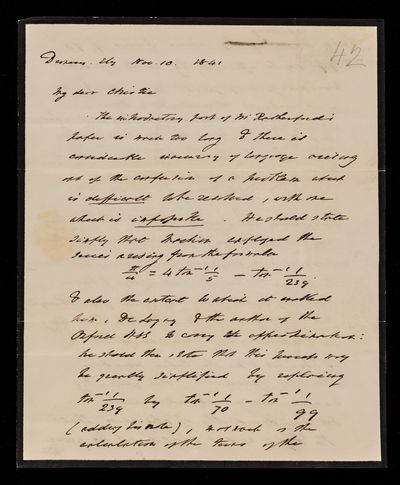 42
Nov. 10. 1841
My dear Christie
The introductory part of Mr Rutherford's
paper is much too long & there is
considerable inaccuracy of language arising
out of the confusion of a problem which
is difficult to be resolved, with one
which is impossible. He should state
simply that Machin employed the
series arising from the formula
π/4 = 4 tan⁻¹ 1/5 − tan⁻¹ 1/239.
& also the extent to which it enabled
him, De Lagny & the author of the
Oxford MSS to carry the approximation:
he should then state that this process may
be greatly simplified by replacing
tan⁻¹ 1/239 by tan⁻¹ 1/70 − tan⁻¹ 1/99
(adding his note), in as much as the
calculation of the terms of the